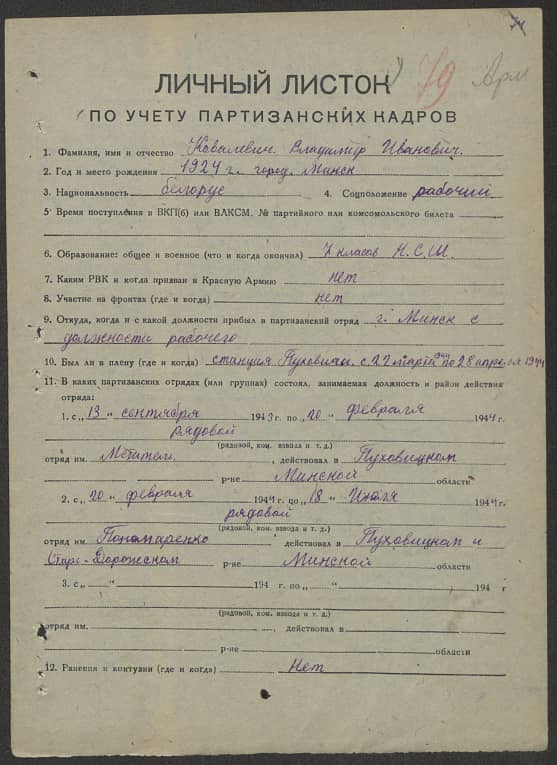 79 Арм
ЛИЧНЫЙ ЛИСТОК
ПО УЧЕТУ ПАРТИЗАНСКИХ КАДРОВ
1. Фамилия, имя и отчество Ковалевич Владимир Иванович.
2. Год и место рождения 1924 г. город. Минск
3. Национальность белорус 4. Соцположение рабочий
5. Время поступления в ВКП(б) или ВЛКСМ. № партийного или комсомольского билета
6. Образование: общее и военное (что и когда окончил) 7 класов Н.С.Ш.
7. Каким РВК и когда призван в Красную Армию нет
8. Участие на фронтах (где и когда) нет
9. Откуда, когда и с какой должности прибыл в партизанский отряд г. Минск с
должности рабочего
10. Был ли в плену (где и когда) станция Пуховичи. с 22 марта 1944 по 28 апреля 1944
11. В каких партизанских отрядах (или группах) состоял, занимаемая должность и район действия
отряда:
1. с „13 “ сентября 1943 г. по „20 “ февраля 1944 г.
рядовой
(рядовой, ком. взвода и т. д.)
отряд им. Мститель. , действовал в Пуховицком
р-не Минской области
2. с „20 “ февраля 1944 г. по „18 “ Июля 1944 г.
рядовой
(рядовой, ком. взвода и т. д.)
отряд им. Пономаренко действовал в Пуховицком и
Старо-Дорожском р-не Минской области
3. с „ “ 194 г. по „ “ 194 г
(рядовой, ком. взвода и т. д.)
отряд им. , действовал в
р-не области
12. Ранения и контузии (где и когда) Нет